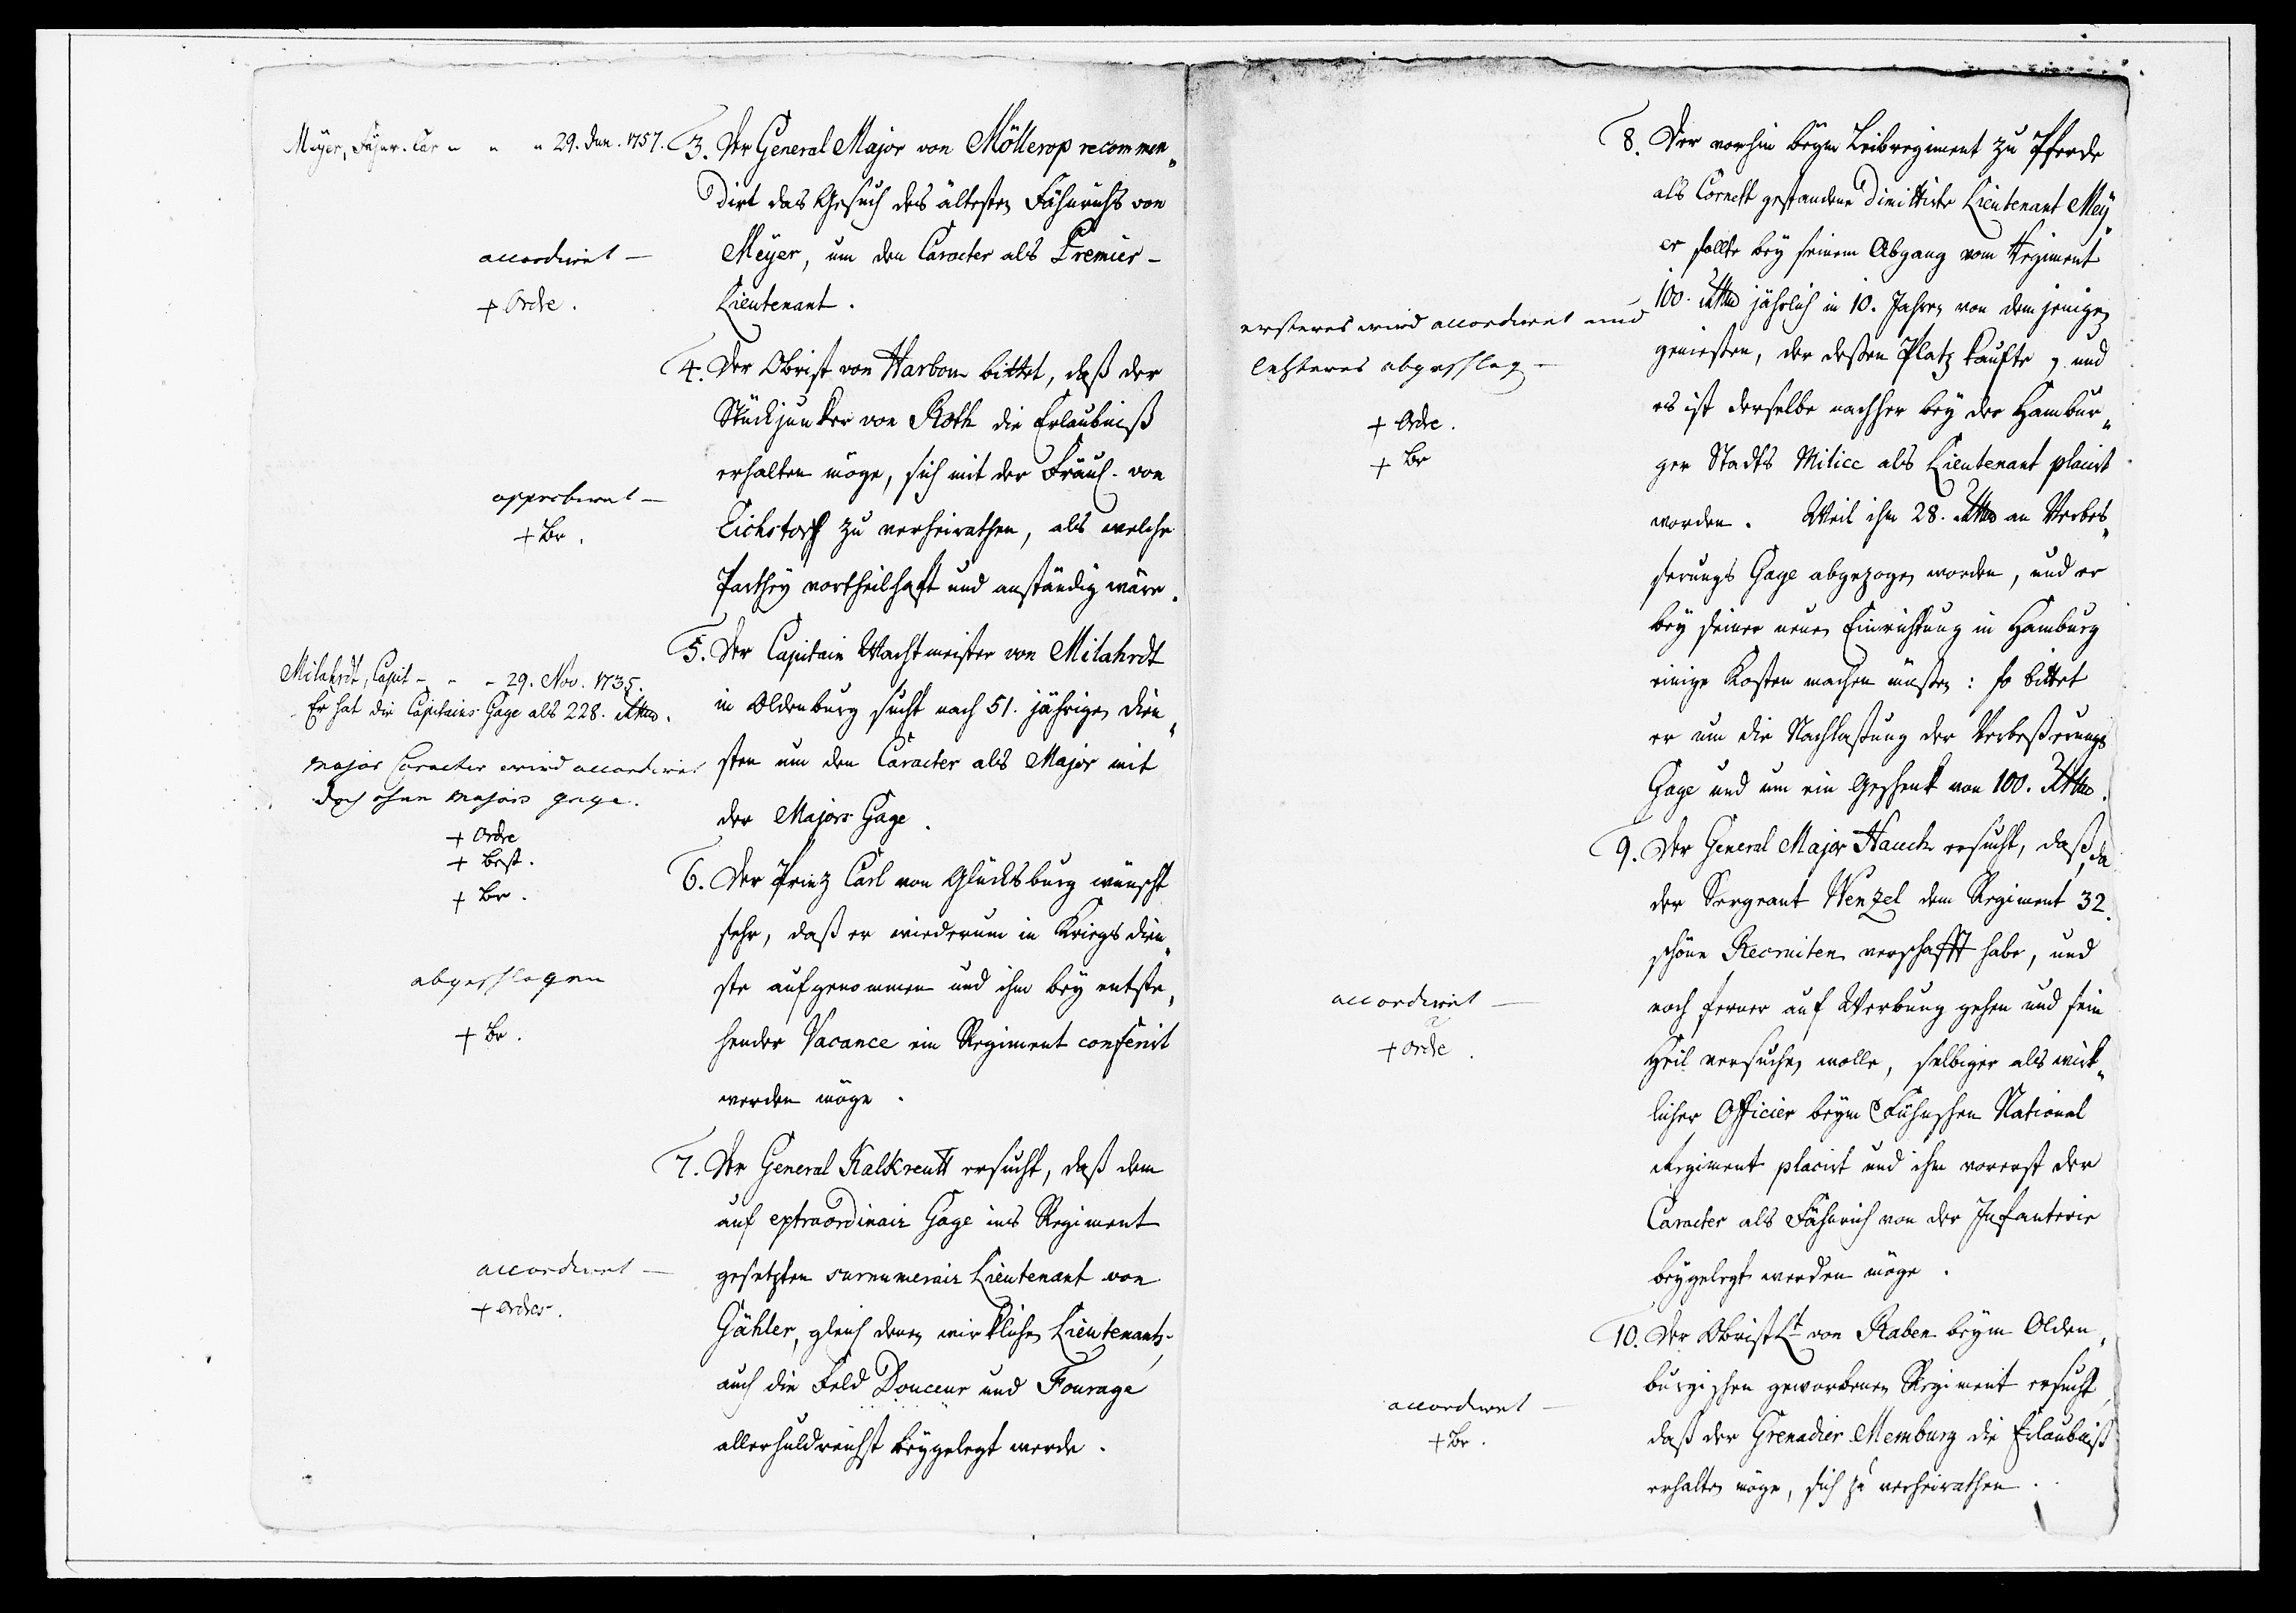 Meyer, Fähnr. Car - - - 29. Jun. 1757.
3. Der General Major von Möllerop recommen„
dirt das Gesuch des ältesten Fähnrichs von
Meyer, um den Caracter als Premier-
Lieutenant.
accordiret —
+ Ordre.
4. Der Obrist von Harbou bittet, daß der
Stückjunker von Roth die Erlaubniß
erhalten möge, sich mit der Fräul. von
Eichstorff zu verheirathen, als welche
Parthey vortheilhaft und anständig wäre.
approbiret —
+ Br.
5. Der Capitain Wachtmeister von Milahrdt
in Oldenburg sucht nach 51. jährigen Dien„
sten um den Caracter als Major mit
der Majors Gage.
Milahrdt, Capit - - - 29. Nov. 1735.
Er hat die Capitains Gage als 228. Rthlr.
Major Caracter wird accordiret
doch ohne Majors gage.
+ Ordre
+ Best.
+ Br.
6. Der Prinz Carl von Glücksburg wünscht
sehr, daß er wiederum in Kriegs Dien„
ste aufgenommen und ihm bey entste„
hender Vacance ein Regiment conferirt
werden möge.
abgeschlagen
+ Br.
7. Der General Kalkreutt ersucht, daß dem
auf extraordinair Gage ins Regiment
gesetzten surnumerair Lieutenant von
Gähler, gleich denen wirklichen Lieutenants,
auch die Feld Douceur und Fourage
allerhuldreichst beygelegt werde.
accordiret —
+ Ordres.
8. Der vorhin beym Leibregiment zu Pferde
als Cornett gestandene dimittirte Lieutenant Mey„
er sollte bey seinem Abgang vom Regiment
100. Rthlr jährlich in 10. Jahren von demjenigen
geniessen, der dessen Platz kaufte, und
es ist derselbe nachher bey der Hambur„
ger Stadts Milice als Lieutenant placirt
worden. Weil ihm 28. Rthlr an Verbes„
serungs Gage abgezogen worden, und er
bey seiner neuen Einrichtung in Hamburg
einige Kosten machen müssen: so bittet
er um die Nachlassung der Verbesserungs
Gage und um ein Geschenk von 100. Rthlr.
ersteres wird accordiret und
letzteres abgeschlag —
+ Ordre.
+ Br
9. Der General Major Hauch ersucht, daß, da
der Sergeant Wenzel dem Regiment 32.
schöne Recruiten verschafft habe, und
noch ferner auf Werbung gehen und sein
Heil versuchen wolle, selbiger als würk„
licher Officier beym Fühnschen National
Regiment placirt und ihm vorerst der
Caracter als Fähnrich von der Infanterie
beygelegt werden möge.
accordiret —
+ Ordre.
10. Der Obrist Lt von Raben beym Olden„
burgischen geworbenen Regiment ersucht,
daß der Grenadier Memburg die Erlaubniß
erhalten möge, sich zu verheirathen.
accordiret —
+ Br.